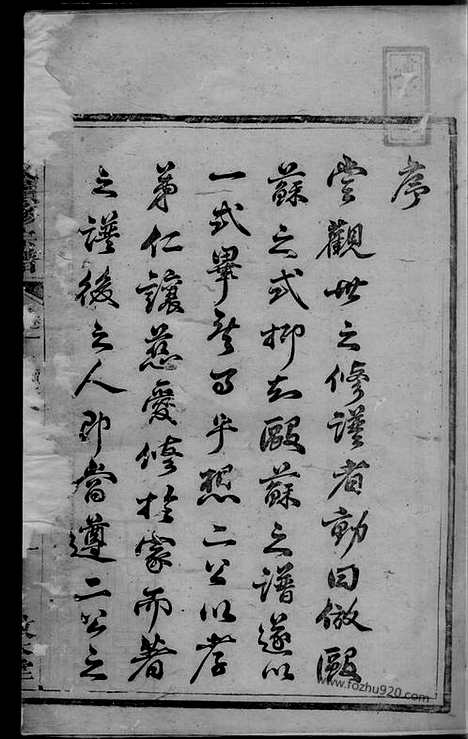 序
嘗觀世之修譜者動曰倣歐
蘇之式抑知歐蘇之譜遂以
一式畢乃事乎想二公以孝
弟仁讓慈愛修於家而著
之譜後之人即當遵二公之
www.fozhu920.com